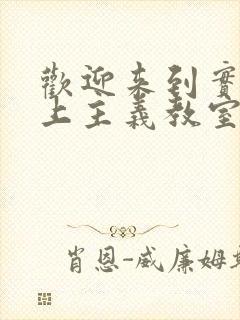 歡迎來到實
上主義教室
肖恩-威廉姆斯